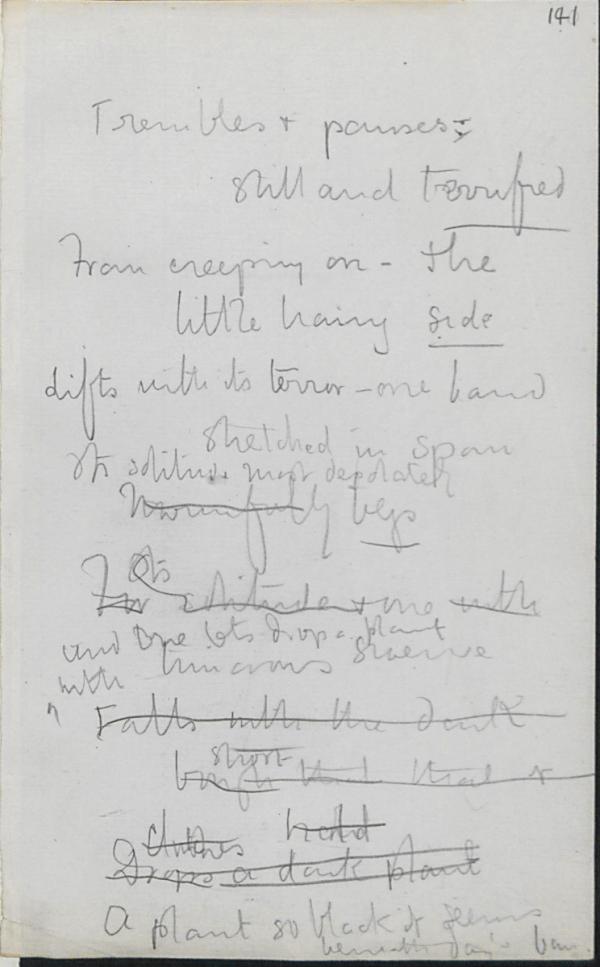 141
Trembles & pauses;
still and terrified
From creeping on - the
little hairy side
lifts with its terror - one hand
stretched in span
Its solitude most desolately
Mournfully begs
Its
For solitude & one with
and One lets drop a plant
with luminous
Falls with the dark
short
bough that that &
Clutches held
Drops a dark plant
A plant so black it seems
beneath day's